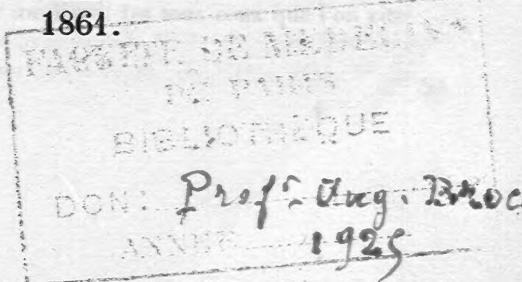 1861.
FACULTÉ DE MÉDECINE
DE PARIS
BIBLIOTHÈQUE
DON: Profr Aug. Broc
ANNÉE 1925